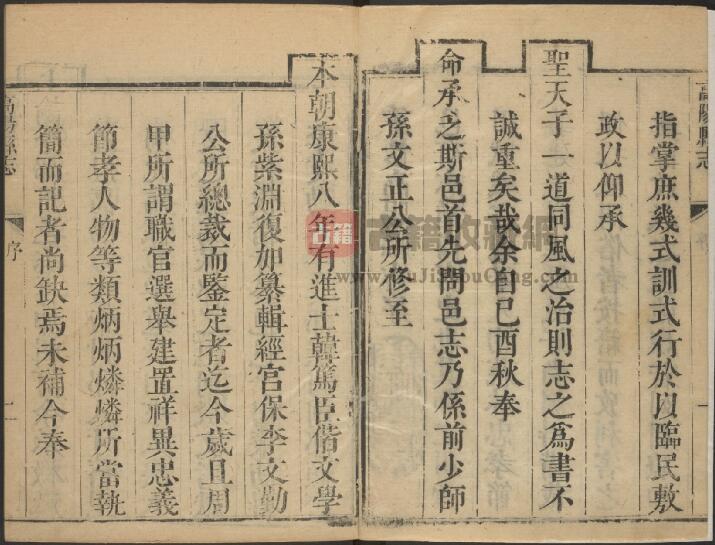 高陽縣志
指掌庶幾式訓式行於以臨民敷
政以仰承
聖天子一道同風之治則志之為書不
誠重矣哉余自己酉秋奉
命承之斯邑首先問邑志乃係前少師
孫文正公所修至
本朝康熙八年有進士韓篤臣偕文學
孫紫淵復加纂輯經官保李文勤
公所總裁而鑒定者迄今歲且周
甲所謂職官選舉建置祥異忠義
節孝人物等類炳炳燐燐所當執
簡而記者尚缺焉未補今奉
高陽縣志
序
古籍
古籍收藏網